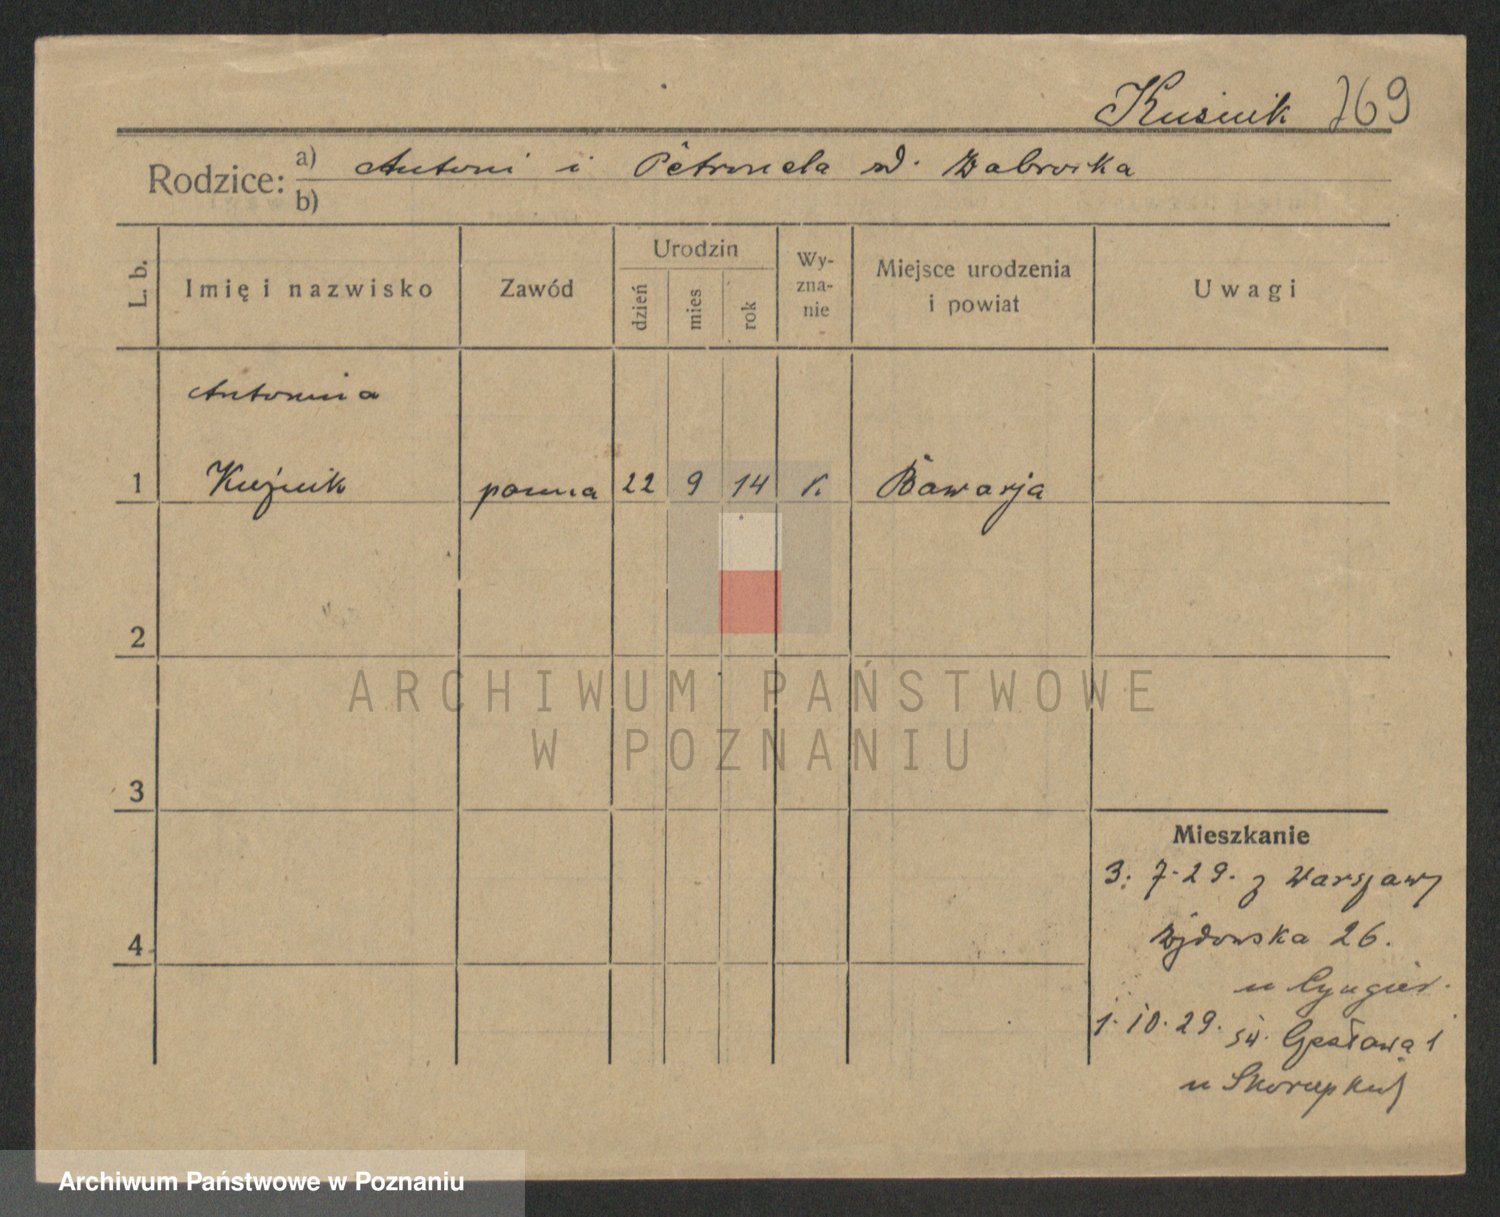 Kuśnik 769
Rodzice: a) Antoni i Petronela zd. Zabrocka
b)
L. b. Imię i nazwisko Zawód Urodzin dzień mies rok Wy-zna-nie Miejsce urodzenia i powiat Uwagi
Antonina
1 Kuźnik panna 22 9 14 K. Bawarja
2
ARCHIWUM PAŃSTWOWE
W POZNANIU
3
Mieszkanie
3. 7.29. z Warszawy
4 Żydowska 26.
u
1.10.29. św. Czesława 1
u Skorupki
Archiwum Państwowe w Poznaniu